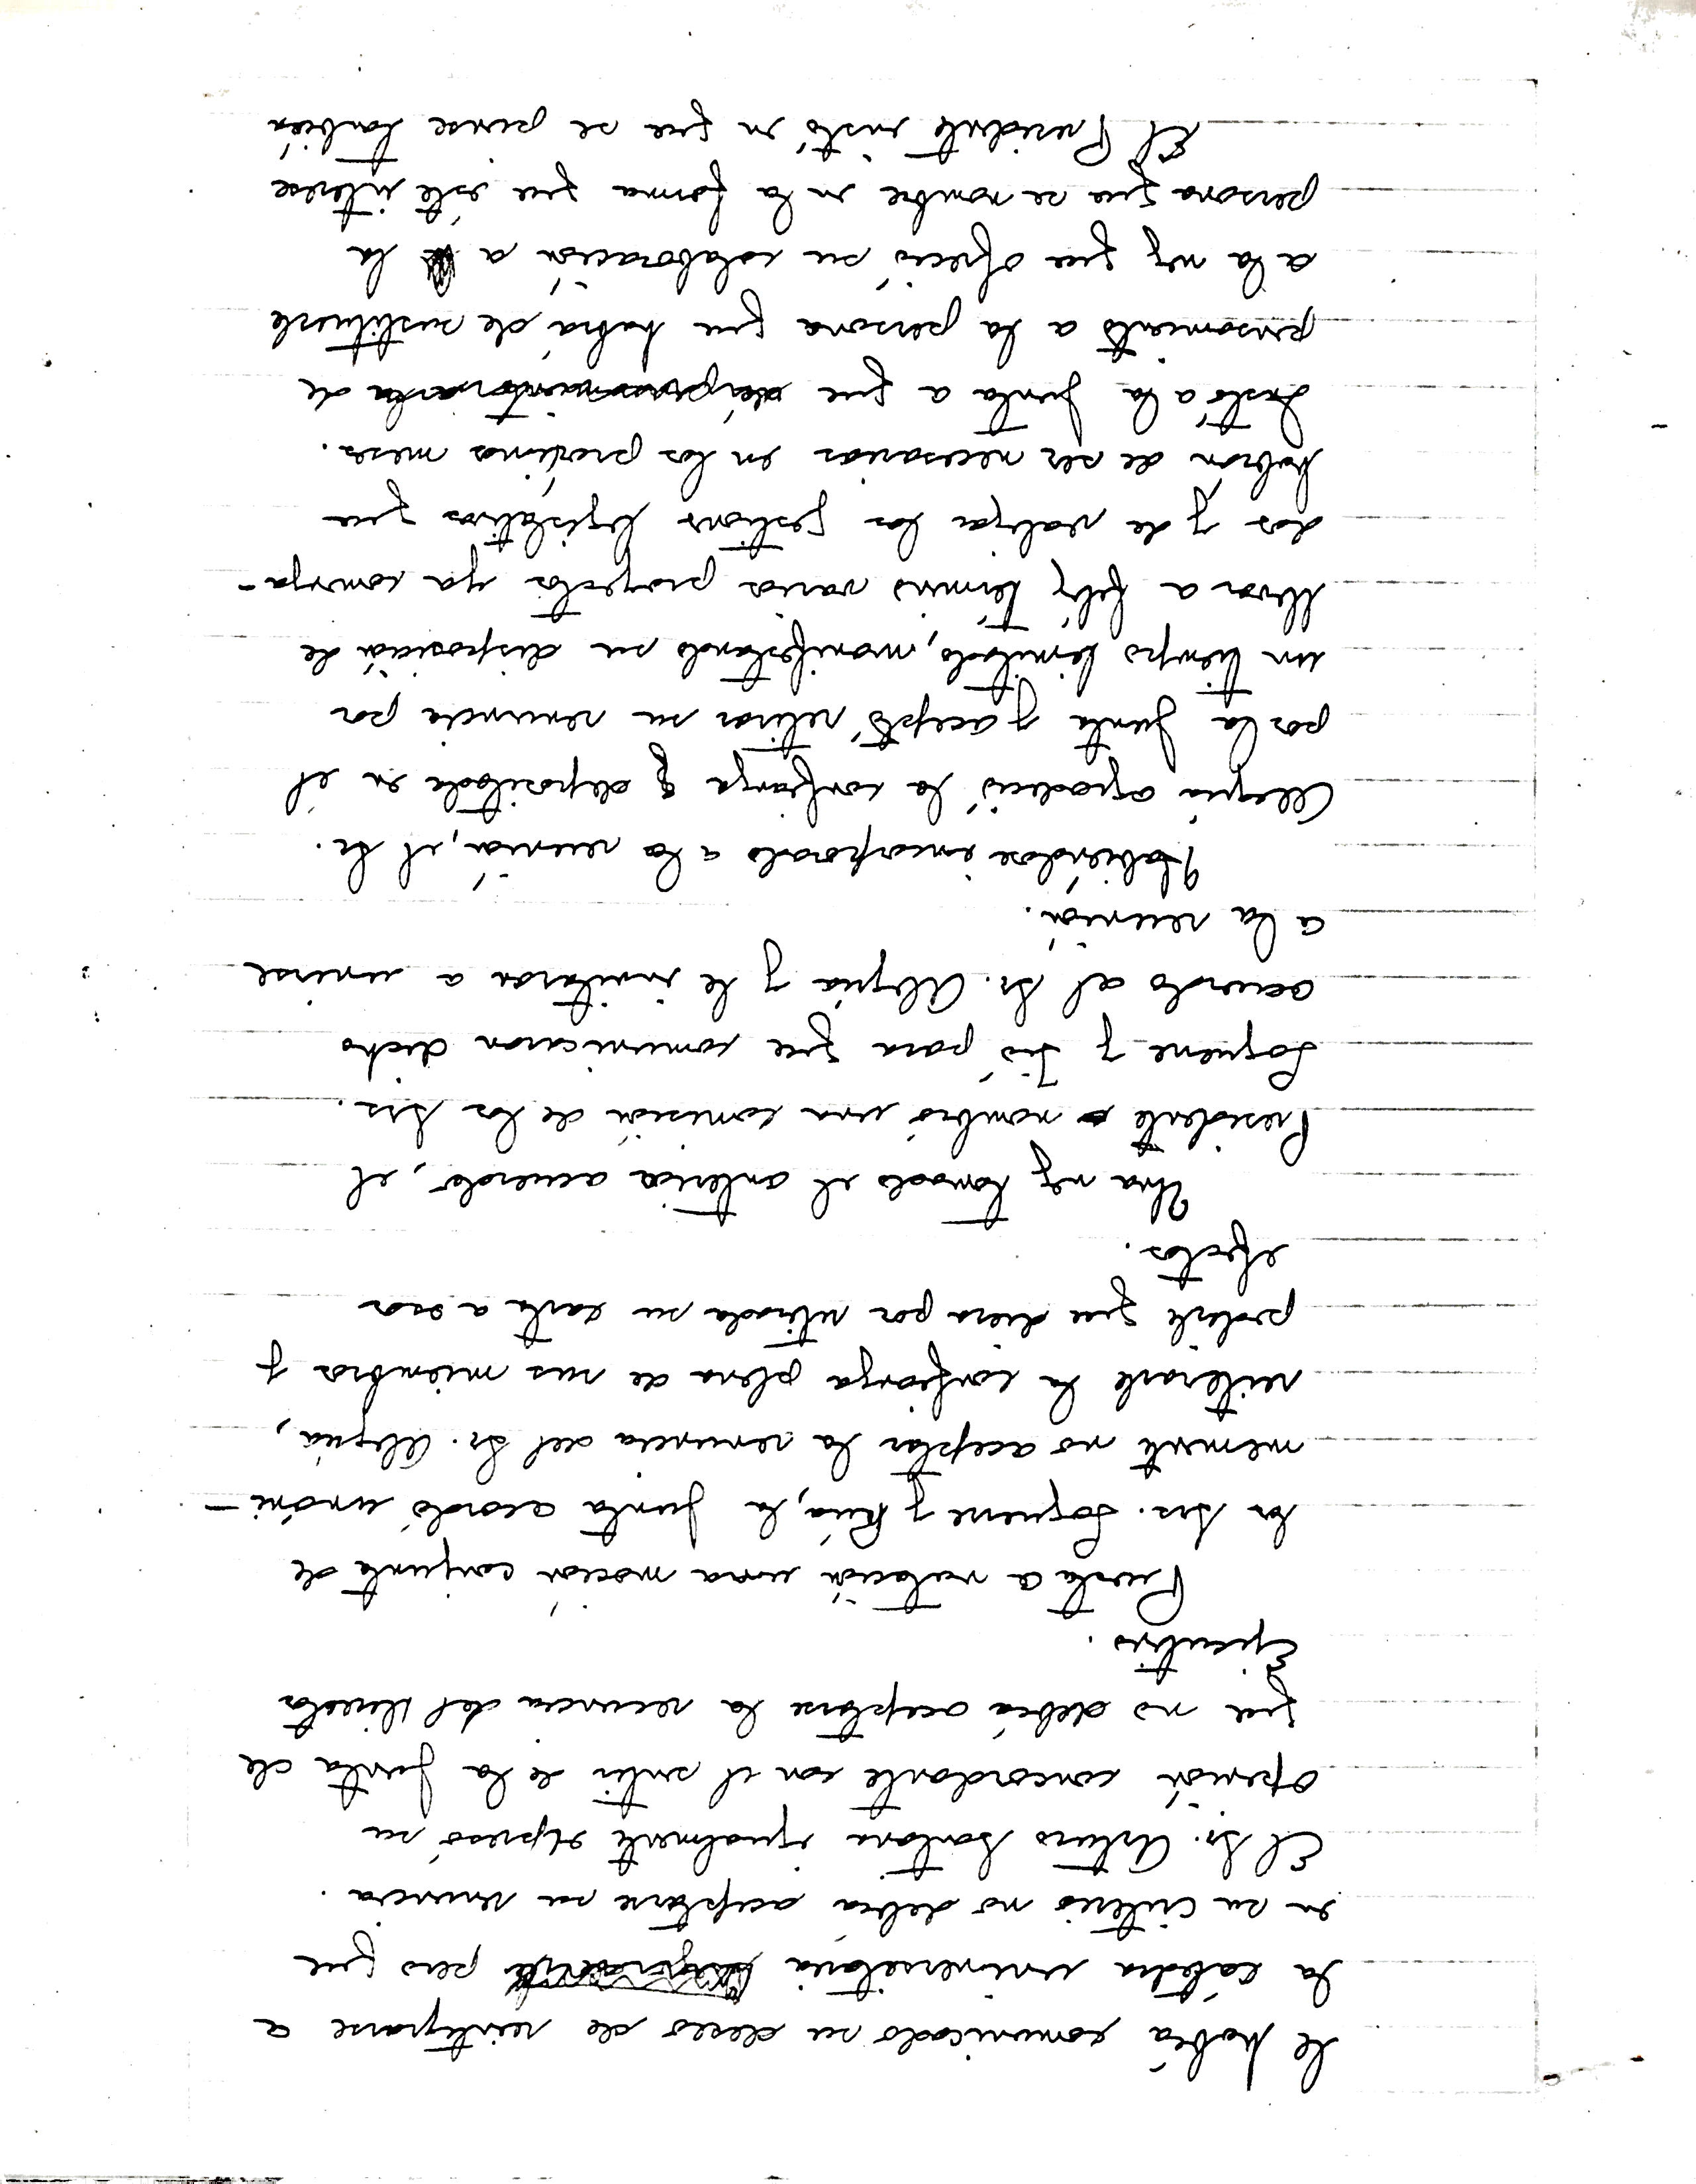 le había comunicado su deseo de reintegrarse a
la cátedra universitaria pero que
en su criterio no debía aceptarse su renuncia.
El Sr. Arturo Santana igualmente expresó su
opinión concordante con el sentir de la Junta de
que no debía aceptarse la renuncia del Director
Ejecutivo.
Puesta a votación una moción conjunta de
los Srs. Soquene y Rúa, la Junta acordó unáni-
memente no aceptar la renuncia del Sr. Alegría,
reiterarle la confianza plena de sus miembros y
pedirle que diera por retirada su carta a esos
efectos.
Una vez tomado el anterior acuerdo, el
Presidente nombró una comisión de los Srs.
Soquene y Tió para que comunicaran dicho
acuerdo al Sr. Alegría y le invitaran a unirse
a la reunión.
Habiéndose incorporado a la reunión, el Sr.
Alegría agradeció la confianza depositada en él
por la Junta y aceptó retirar su renuncia por
un tiempo limitado, manifestando su disposición de
llevar a feliz término varios proyectos ya comenza-
dos y de realizar las gestiones legislativas que
habrán de ser necesarias en los próximos meses.
Instó a la Junta a que de
pensamiento a la persona que habrá de sustituirle
a la vez que ofreció su colaboración a la
persona que se nombre en la forma que éste interese
El Presidente instó en que se piense también